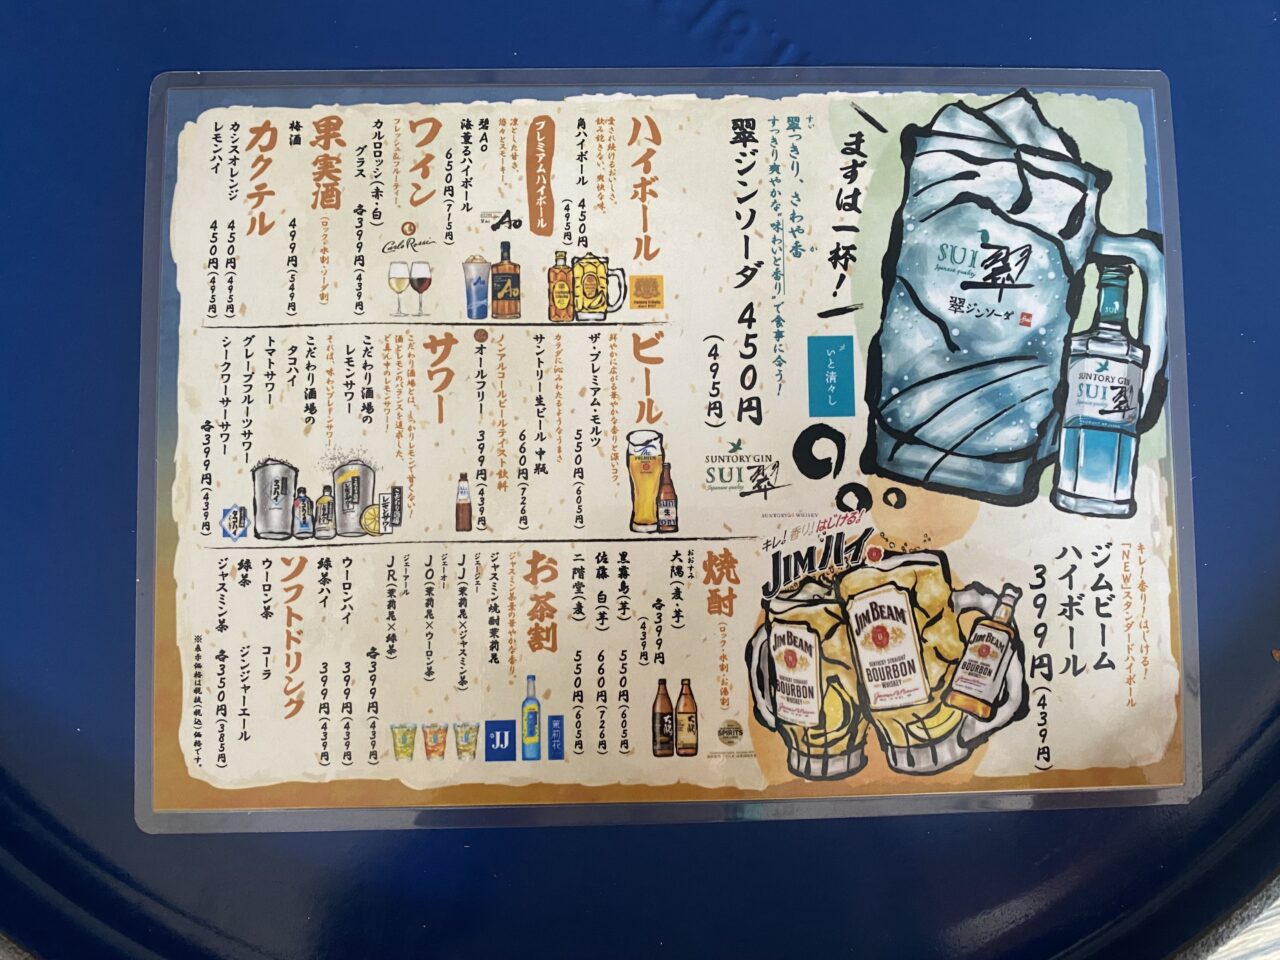 まずは一杯!
翠っきり、さわや香
すい
か
すっきり爽やかな"味わいと香り"で食事に合う!
翠ジンソーダ 450円
(495円)
いと清々し
SUNTORY GIN
SUI 翠
Japanese quality
SUI 翠
Japanese quality
翠ジンソーダ
SUNTORY GIN
SUI 翠
キレ!香り!はじける!
「NEW」スタンダードハイボール
ジムビーム
ハイボール
399円(439円)
キレ!香り!はじける!
JIMハイ。
JIM BEAM
KENTUCKY STRAIGHT
BOURBON
WHISKEY
JIM BEAM
KENTUCKY STRAIGHT
BOURBON
WHISKEY
JIM BEAM
BOURBON
ハイボール
愛され続けるおいしさ。
飲み飽きない、爽快な味。
角ハイボール 450円
(495円)
プレミアムハイボール
凛とした甘さ、
悠々とスモーキー。
碧Ao
海薫るハイボール
650円(715円)
Ao
ワイン
フレッシュ&フルーティー。
カルロロッシ(赤・白)
グラス 各399円(439円)
Carlo Rossi
果実酒
(ロック・水割・ソーダ割)
梅酒 499円(549円)
カクテル
カシスオレンジ 450円(495円)
レモンハイ 450円(495円)
ビール
鮮やかに広がる華やかな香りと深いコク。
ザ・プレミアム・モルツ
550円(605円)
カラダに沁みわたるようなうまさ
サントリー生ビール 中瓶
660円(726円)
ノンアルコールビールテイスト飲料
オールフリー 399円(439円)
サワー
こだわり酒場とは、しっかりレモンで甘くない!
酒とレモンのバランスを追求した、
ど真ん中のレモンサワー!
こだわり酒場の
レモンサワー
それは、味わいブレンドサワー
こだわり酒場の
タコハイ
トマトサワー
グレープフルーツサワー
シークワーサーサワー
各399円(439円)
タコハイ
こだわり酒場の
レモンサワー
焼酎
(ロック・水割・お湯割)
おおすみ
大隅(麦・芋)
各399円
(439円)
黒霧島(芋) 550円(605円)
佐藤 白(芋) 660円(726円)
二階堂(麦) 550円(605円)
大隅
SPIRITS
お茶割
ジャスミン茶葉の華やかな香り。
ジャスミン焼酎茉莉花
ジェージェー
JJ(茉莉花×ジャスミン茶)
ジェーオー
JO(茉莉花×ウーロン茶)
ジェーアール
JR(茉莉花×緑茶)
各399円(439円)
ウーロンハイ 399円(439円)
緑茶ハイ 399円(439円)
JJ
茉莉花
ソフトドリンク
ウーロン茶 コーラ
緑茶 ジンジャーエール
ジャスミン茶 各350円(385円)
※表示価格は税抜(税込)価格です。